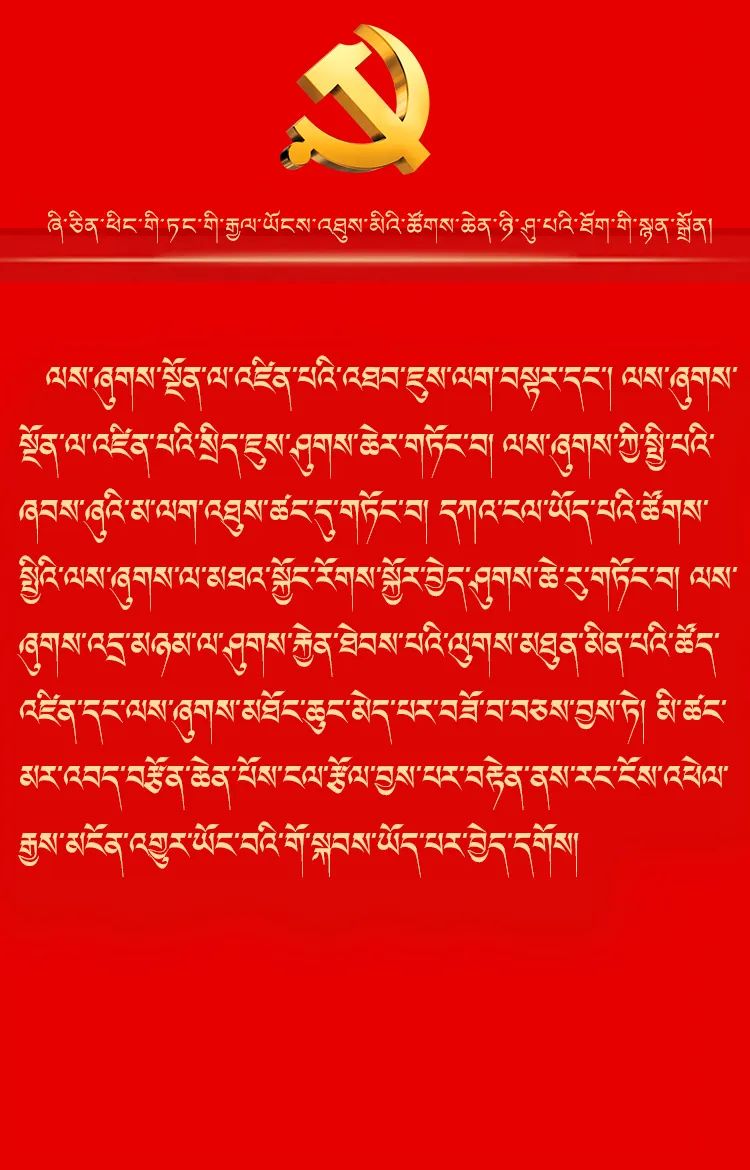 ཞི་ཅིན་ཕིང་གི་ཏང་གི་རྒྱལ་ཡོངས་འཐུས་མིའི་ཚོགས་ཆེན་ཉི་ཤུ་པའི་ཐོག་གི་སྙན་སྒྲོན།
ལས་ཞུགས་སྔོན་ལ་འཛིན་པའི་འཐབ་ཇུས་ལག་བསྟར་དང་། ལས་ཞུགས་
སྔོན་ལ་འཛིན་པའི་སྲིད་ཇུས་ཤུགས་ཆེར་གཏོང་བ། ལས་ཞུགས་ཀྱི་སྤྱི་པའི་
ཞབས་ཞུའི་མ་ལག་འཐུས་ཚང་དུ་གཏོང་བ། དཀའ་ངལ་ཡོད་པའི་ཚོགས་
སྤྱིའི་ལས་ཞུགས་ལ་མཐའ་སྐྱོང་རོགས་སྐྱོར་བྱེད་ཤུགས་ཆེ་རུ་གཏོང་བ། ལས་
ཞུགས་འདྲ་མཉམ་ལ་ཤུགས་རྐྱེན་ཐེབས་པའི་ལུགས་མཐུན་མིན་པའི་ཚོད་
འཛིན་དང་ལས་ཞུགས་མཐོང་ཆུང་མེད་པར་བཟོ་བ་བཅས་བྱས་ཏེ། མི་ཚང་
མར་འབད་བརྩོན་ཆེན་པོས་ངལ་རྩོལ་བྱས་པར་བརྟེན་ནས་རང་ངོས་འཕེལ་
རྒྱས་མངོན་འགྱུར་ཡོང་བའི་གོ་སྐབས་ཡོད་པར་བྱེད་དགོས།